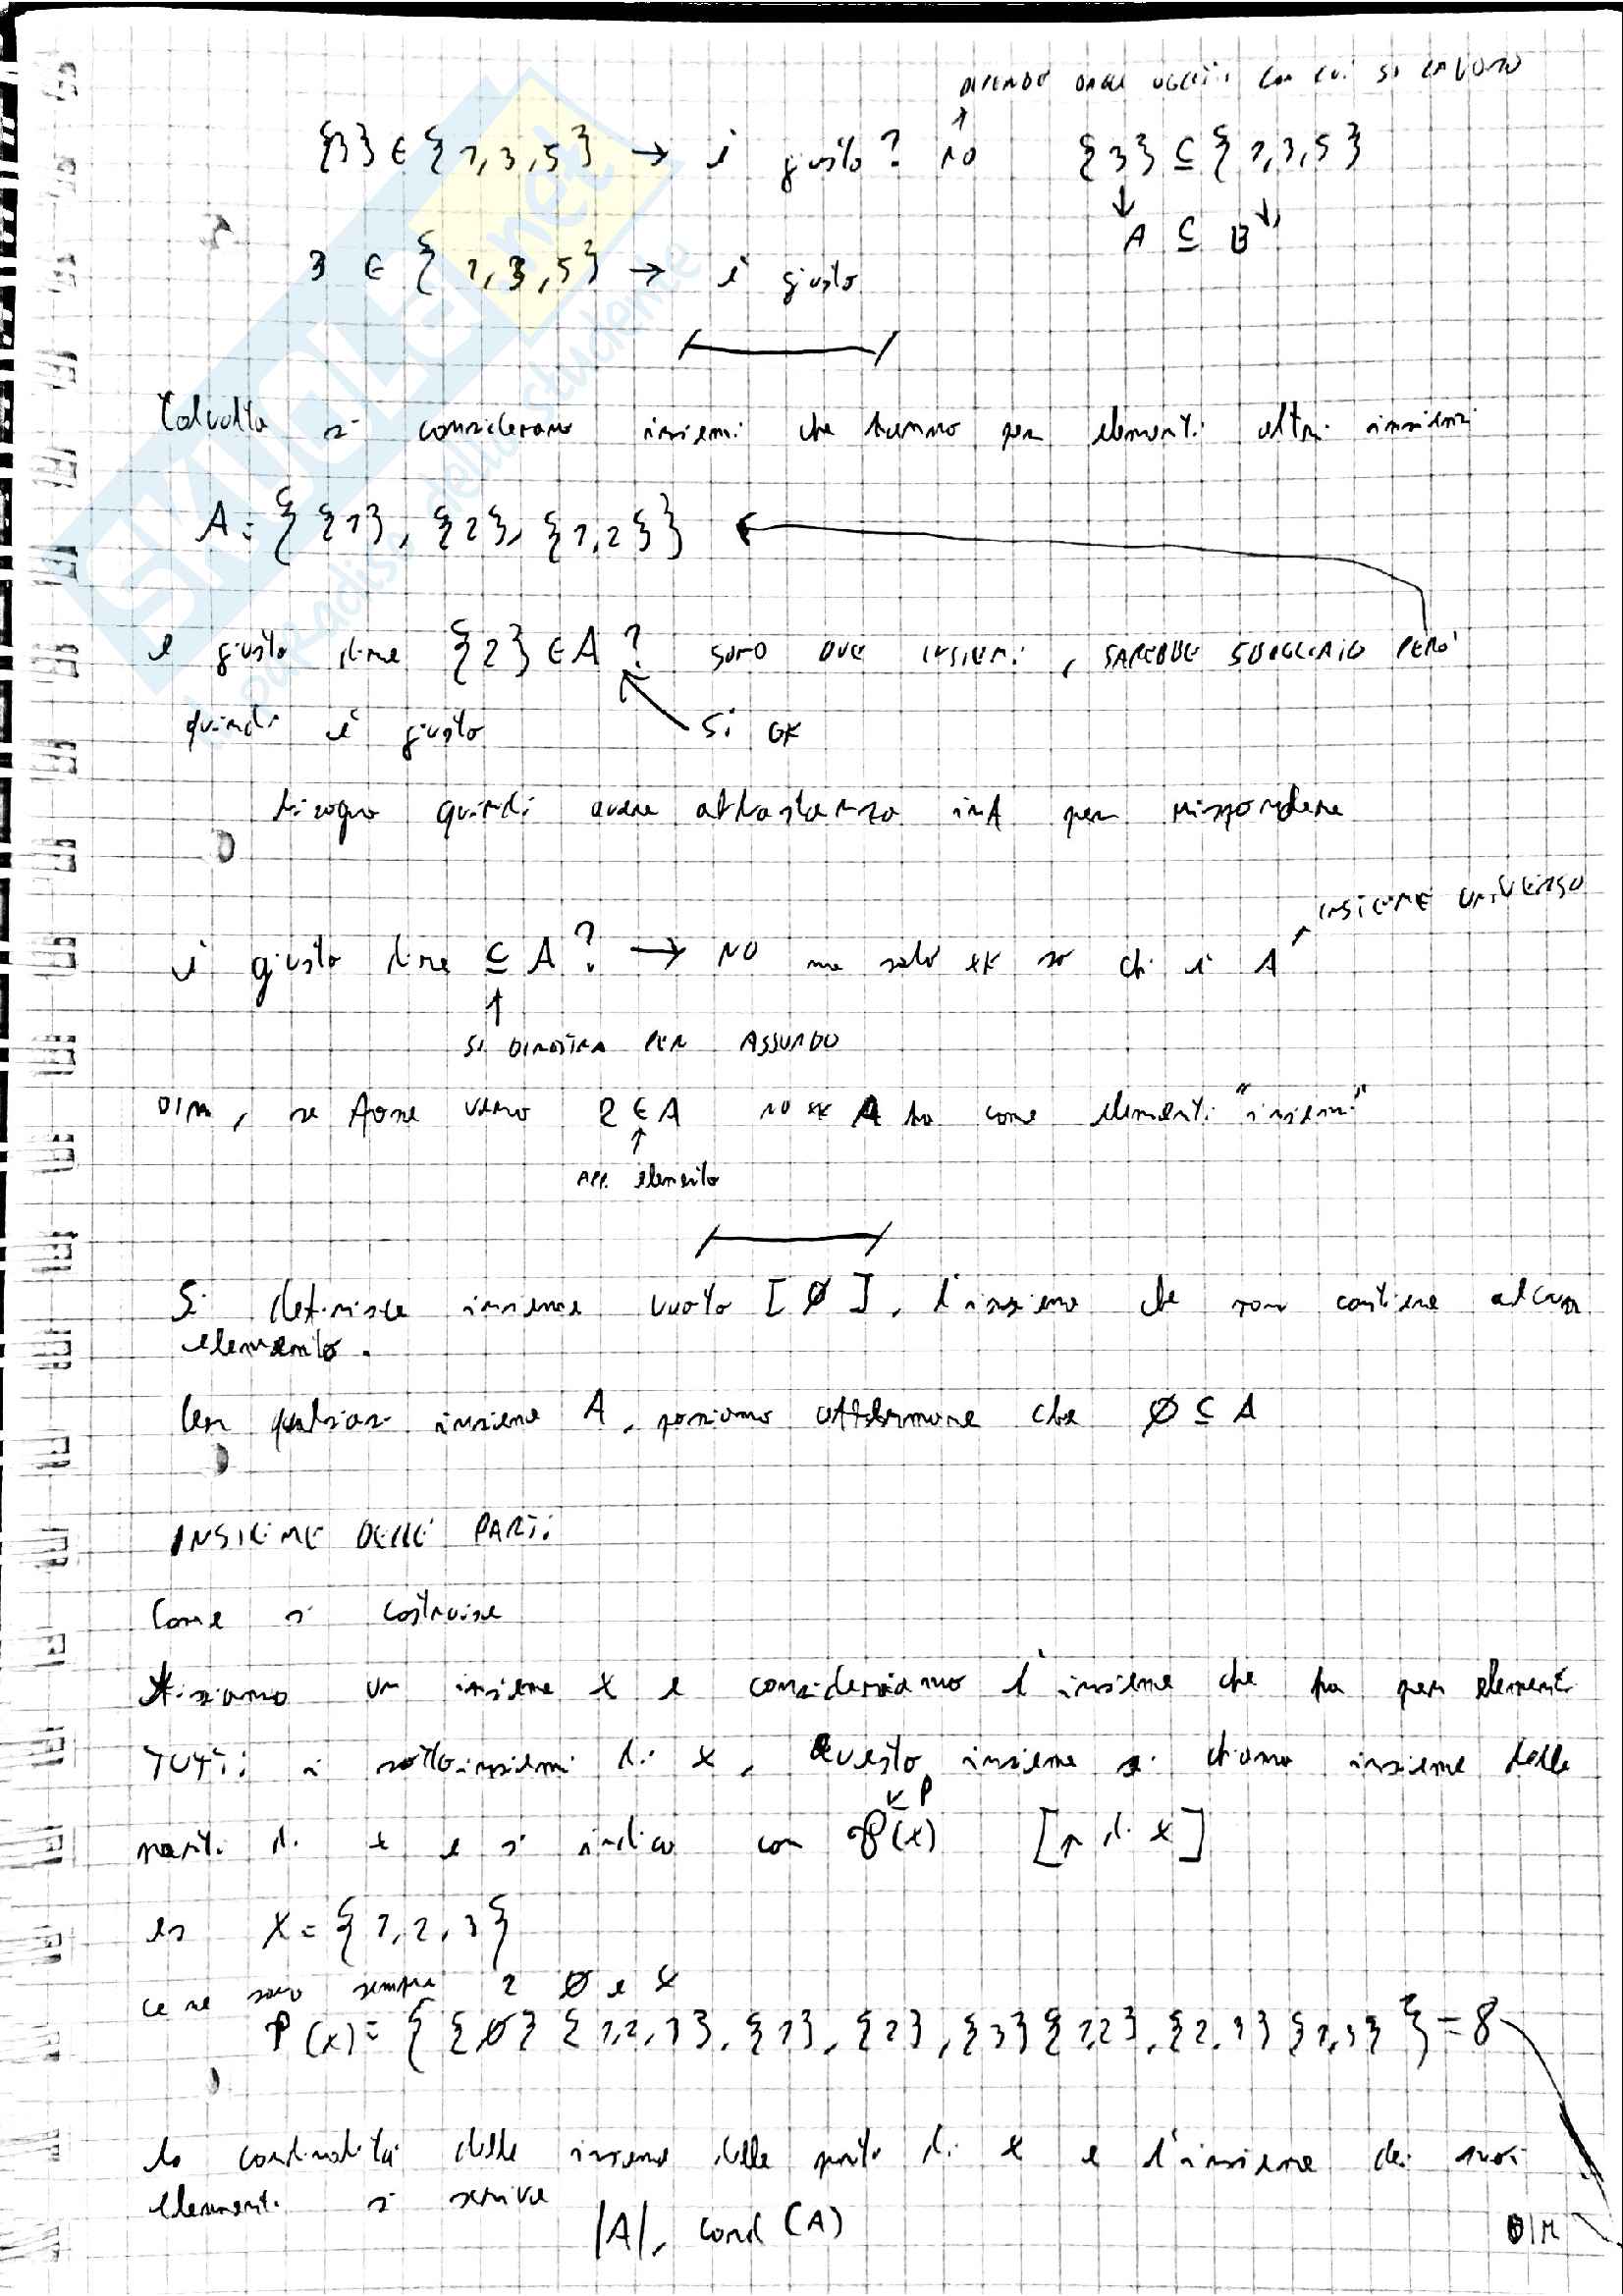 DIPENDE DAGLI OGGETTI CON CUI SI LAVORA
{3} ∈ {1,3,5} → è giusto? NO {3} ⊆ {1,3,5}
A ⊆ B
3 ∈ {1,3,5} → è giusto
Talvolta si considerano insiemi che hanno per elementi altri insiemi
A = { {1}, {2}, {1,2} }
è giusto dire {2} ∈ A ? SONO DUE INSIEMI, SAREBBE SBAGLIATO PERÒ
quindi è giusto Si OK
bisogna quindi avere abbastanza inf per rispondere
INSIEME UNIVERSO
è giusto dire ⊆ A ? → NO ma solo xk so chi è A
SI DIMOSTRA PER ASSURDO
DIM, se fosse vero 2 ∈ A NO xk A ha come elementi "insiemi"
APP. elemento
Si definisce insieme vuoto [Ø], l'insieme che non contiene alcun
elemento.
Per qualsiasi insieme A, possiamo affermare che Ø ⊆ A
INSIEME DELLE PARTI
Come si costruisce
Fissiamo un insieme X e consideriamo l'insieme che ha per elementi
TUTTI i sottoinsiemi di X, Questo insieme si chiama insieme delle
P
parti di X e si indica con P(X) [P di X]
es X = {1,2,3}
ce ne sono sempre 2 Ø e X
P(X) = { {Ø} {1,2,3}, {1}, {2}, {3} {1,2}, {2,3} {1,3} } = 8
la cardinalità delle insieme delle parti di X e l'insieme dei suoi
elementi si scrive
|A|, card (A)
DIM
SKUOLA.net
il paradiso dello studente